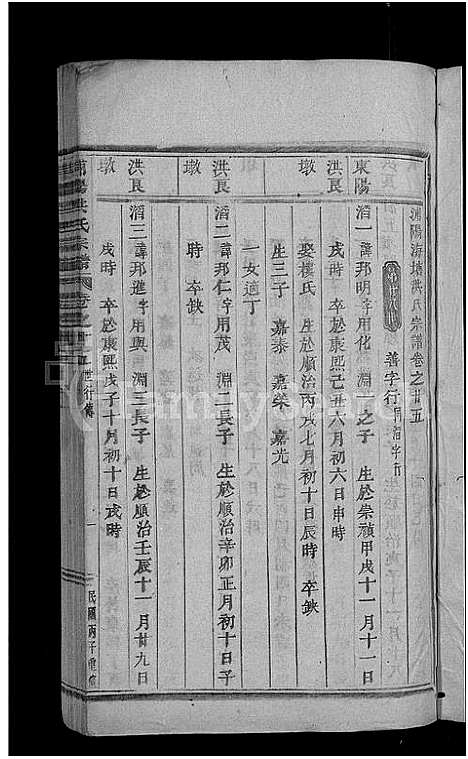 浦陽海塘洪氏宗譜卷之廿五
善字行同滔字行
東陽
滔一諱邦明字用化 淵一之子 生於崇禎甲戌十一月十一日
洪良
戌時 卒於康熙己丑六月初六日申時
墩
娶樓氏 生於順治丙戌七月初十日辰時 卒缺
生三子 嘉泰 嘉榮 嘉光
一女適丁
洪良
滔二諱邦仁字用茂 淵二長子 生於順治辛卯正月初十日子
墩
時 卒缺
洪良
滔三諱邦進字用興 淵三長子 生於順治壬辰十一月廿九日
墩
戌時 卒於康熙戊子十月初十日戌時
氏宗譜 卷之廿五 世行傳 一 民國丙子重修